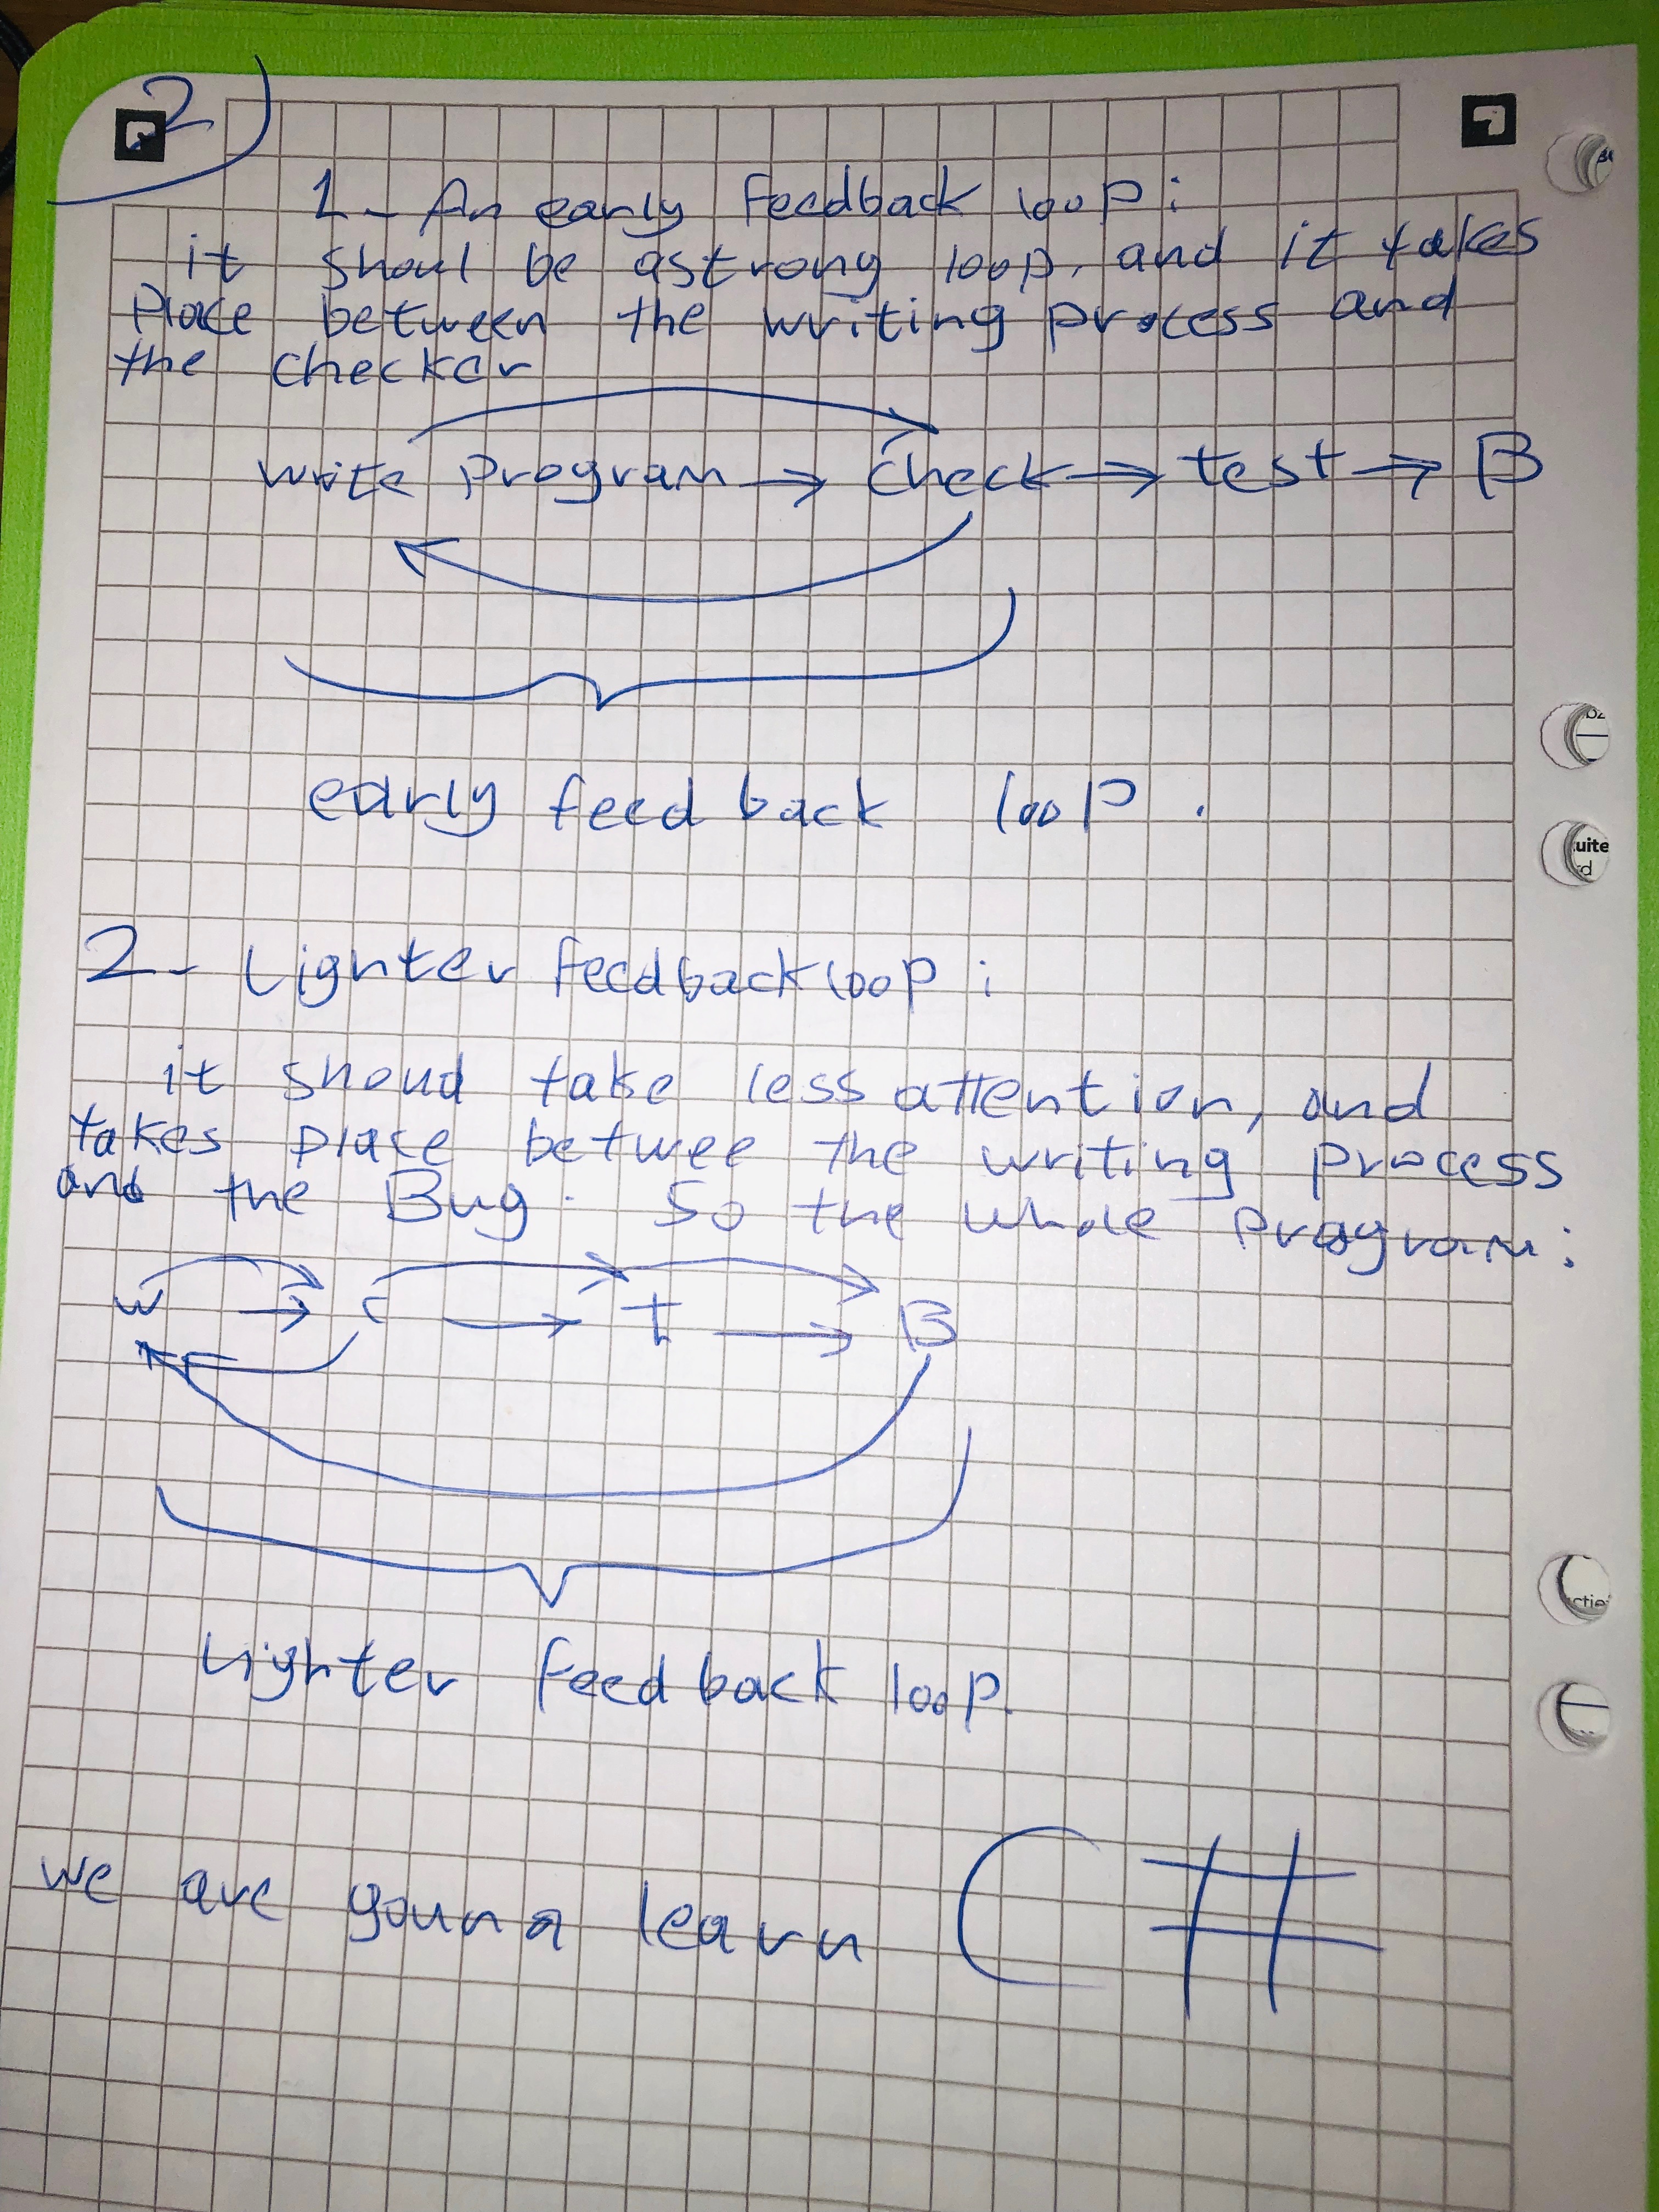 2
1- An early feedback loop:
it shoul be a strong loop, and it takes
place between the writing process and
the checker
write program → check → test → B
early feed back loop.
2- Lighter feedback loop:
it shoud take less attention, and
takes place betwee the writing process
and the Bug. So the whole program:
w → c → T → B
Lighter feed back loop.
we are gounna learn C#
uite
rd